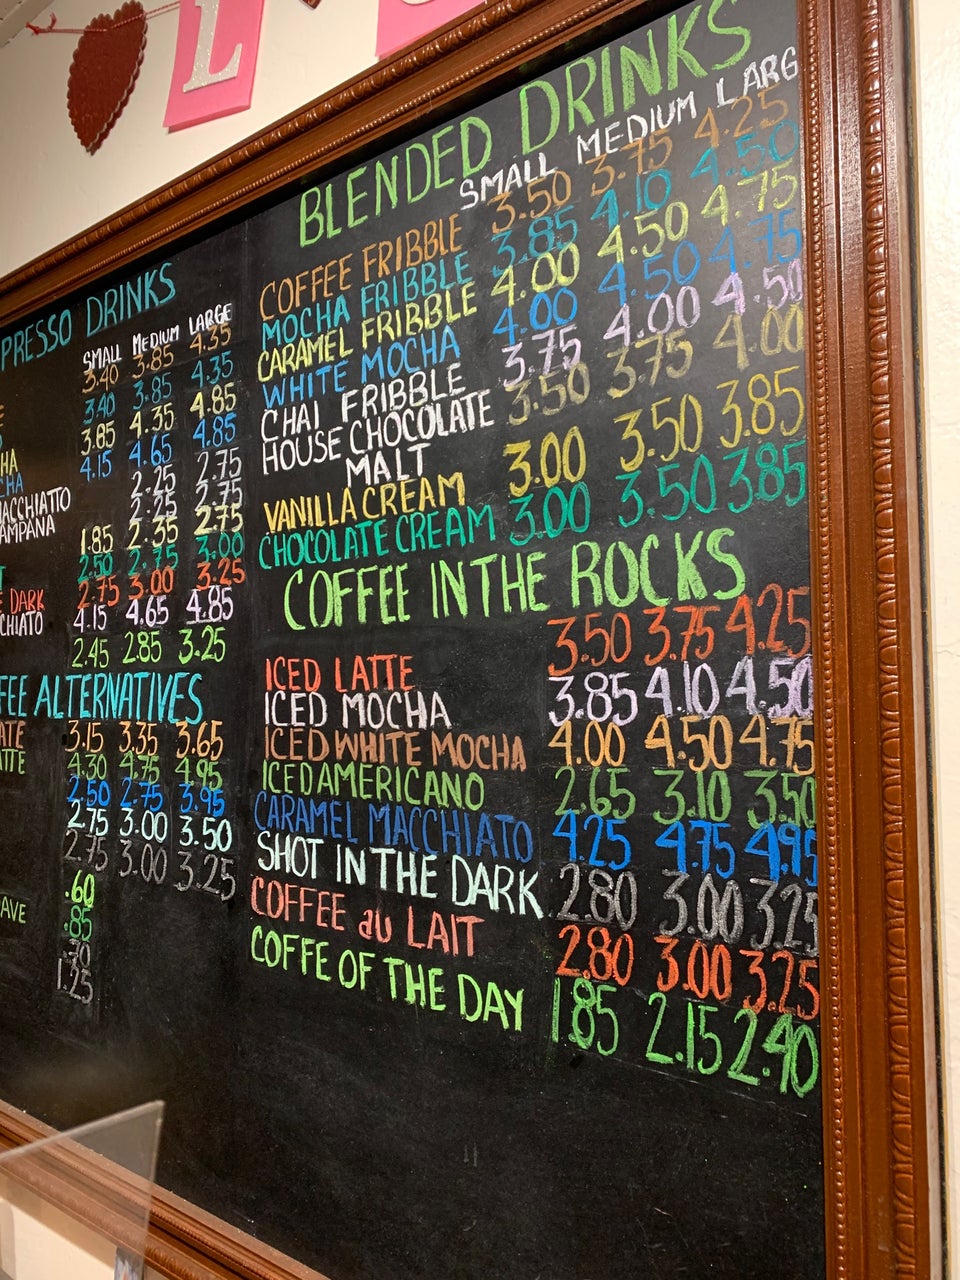 L
PRESSO DRINKS
SMALL MEDIUM LARGE
3.40 3.85 4.35
3.40 3.85 4.35
3.85 4.35 4.85
HA 4.15 4.65 4.85
ACCHIATO 2.25 2.75
AMPANA 2.25 2.75
1.85 2.35 2.75
2.50 2.75 3.00
DARK 2.75 3.00 3.25
CHIATO 4.15 4.65 4.85
2.45 2.85 3.25
FEE ALTERNATIVES
ATE 3.15 3.35 3.65
ATTE 4.30 4.75 4.95
2.50 2.75 3.95
2.75 3.00 3.50
2.75 3.00 3.25
.60
AVE .85
.70
1.25
BLENDED DRINKS
SMALL MEDIUM LARG
COFFEE FRIBBLE 3.50 3.75 4.25
MOCHA FRIBBLE 3.85 4.10 4.50
CARAMEL FRIBBLE 4.00 4.50 4.75
WHITE MOCHA 4.00 4.50 4.75
CHAI FRIBBLE 3.75 4.00 4.50
HOUSE CHOCOLATE 3.50 3.75 4.00
MALT
VANILLA CREAM 3.00 3.50 3.85
CHOCOLATE CREAM 3.00 3.50 3.85
COFFEE IN THE ROCKS
ICED LATTE 3.50 3.75 4.25
ICED MOCHA 3.85 4.10 4.50
ICED WHITE MOCHA 4.00 4.50 4.75
ICED AMERICANO 2.65 3.10 3.50
CARAMEL MACCHIATO 4.25 4.75 4.95
SHOT IN THE DARK 2.80 3.00 3.25
COFFEE au LAIT 2.80 3.00 3.25
COFFE OF THE DAY 1.85 2.15 2.40